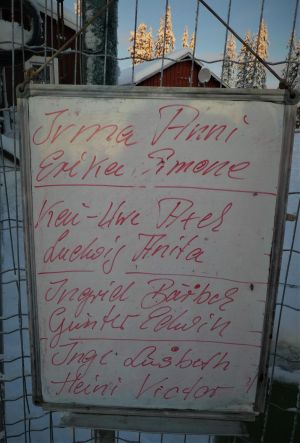 Irma Anni
Erika Simone
Kai-Uwe Axel
Ludwig Anita
Ingrid Bärbel
Günter Edwin
Ingi
Heini Victor